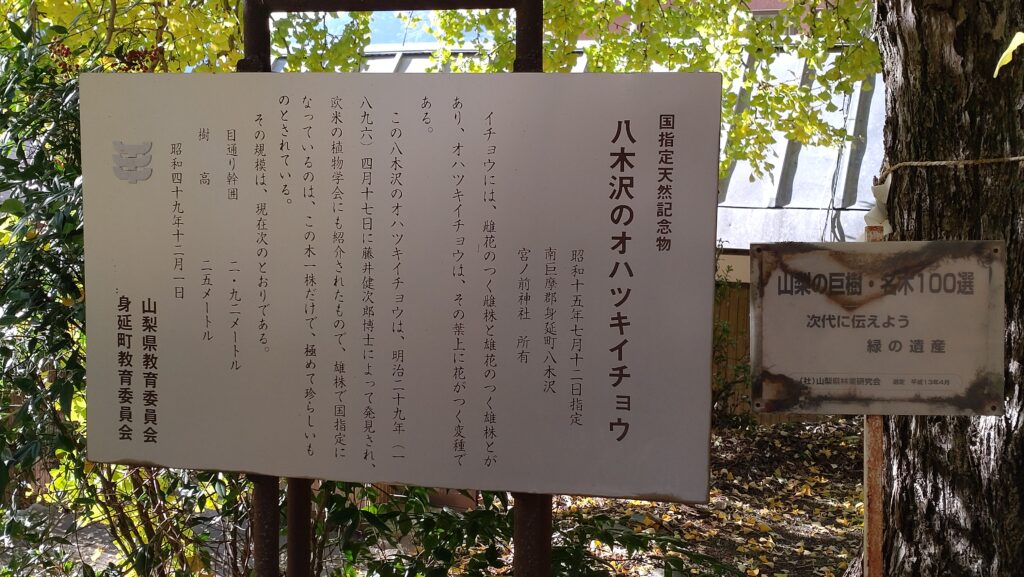 国指定天然記念物
八木沢のオハツキイチョウ
昭和十五年七月十二日指定
南巨摩郡身延町八木沢
宮ノ前神社 所有
イチョウには、雌花のつく雌株と雄花のつく雄株とが
あり、オハツキイチョウは、その葉上に花がつく変種で
ある。
この八木沢のオハツキイチョウは、明治二十九年(一
八九六)四月十七日に藤井健次郎博士によって発見され、
欧米の植物学会にも紹介されたもので、雄株で国指定に
なっているのは、この木一株だけで、極めて珍らしいも
のとされている。
その規模は、現在次のとおりである。
目通り幹囲 二・九二メートル
樹高 二五メートル
昭和四十九年十二月一日
山梨県教育委員会
身延町教育委員会
山梨の巨樹・名木100選
次代に伝えよう
緑の遺産
(社)山梨県林業研究会 選定 平成13年4月